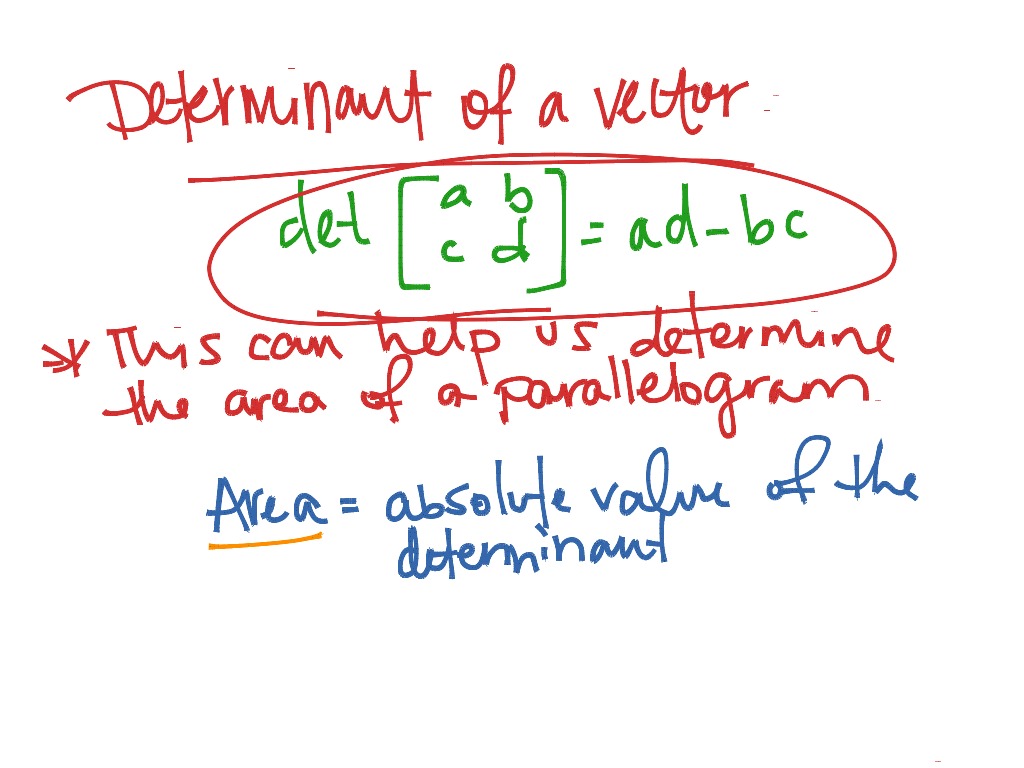 Determinant of a vector
det [a b
c d] = ad - bc
This can help us determine
the area of a parallelogram
Area = absolute value of the
determinant